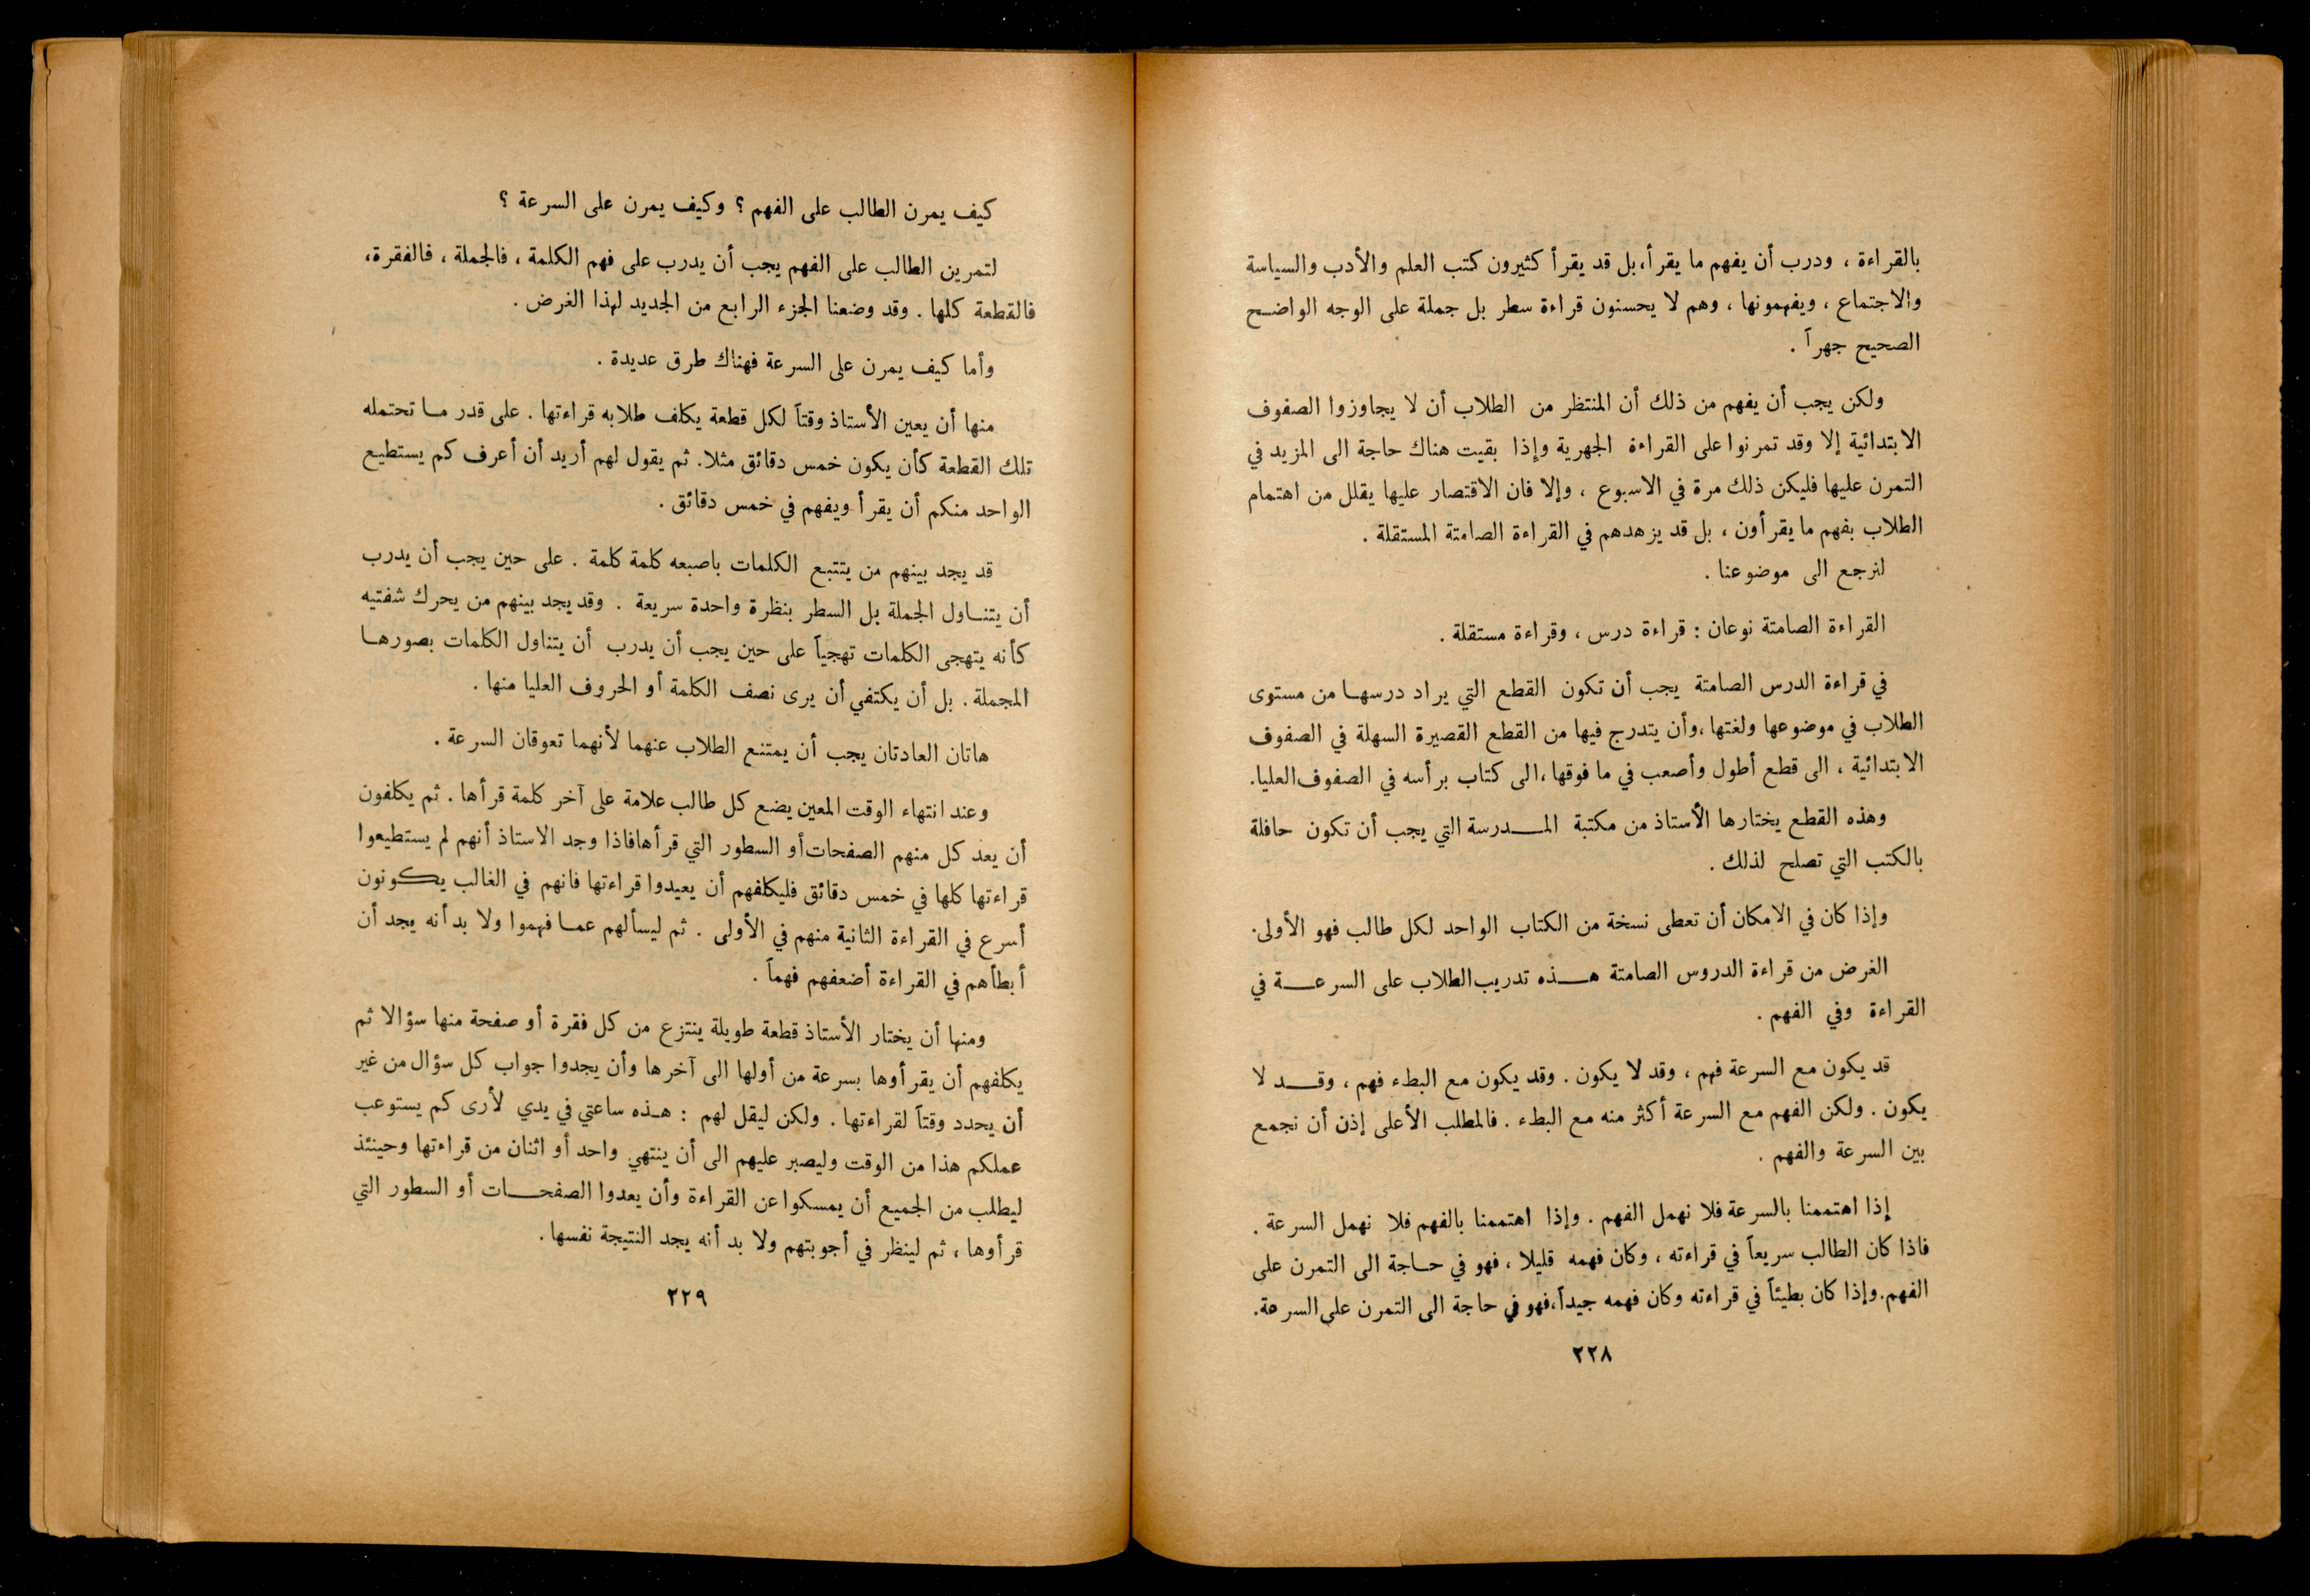 بالقراءة ، ودرب أن يفهم ما يقرأ، بل قد يقرأ كثيرون كتب العلم والأدب والسياسة
والاجتماع ، ويفهمونها ، وهم لا يحسنون قراءة سطر بل جملة على الوجه الواضح
الصحيح جهراً .
ولكن يجب أن يفهم من ذلك أن المنتظر من الطلاب أن لا يجاوزوا الصفوف
الابتدائية إلا وقد تمرنوا على القراءة الجهرية وإذا بقيت هناك حاجة الى المزيد في
التمرن عليها فليكن ذلك مرة في الاسبوع ، وإلا فان الاقتصار عليها يقلل من اهتمام
الطلاب بفهم ما يقرأون ، بل قد يزهدهم في القراءة الصامتة المستقلة .
لنرجع الى موضوعنا .
القراءة الصامتة نوعان : قراءة درس ، وقراءة مستقلة .
في قراءة الدرس الصامتة يجب أن تكون القطع التي يراد درسها من مستوى
الطلاب في موضوعها ولغتها ،وأن يتدرج فيها من القطع القصيرة السهلة في الصفوف
الابتدائية ، الى قطع أطول وأصعب في ما فوقها ،الى كتاب برأسه في الصفوف العليا.
وهذه القطع يختارها الأستاذ من مكتبة المدرسة التي يجب أن تكون حافلة
بالكتب التي تصلح لذلك .
وإذا كان في الامكان أن تعطى نسخة من الكتاب الواحد لكل طالب فهو الأولى.
الغرض من قراءة الدروس الصامتة هذه تدريب الطلاب على السرعة في
القراءة وفي الفهم .
قد يكون مع السرعة فهم ، وقد لا يكون . وقد يكون مع البطء فهم ، وقد لا
يكون . ولكن الفهم مع السرعة أكثر منه مع البطء . فالمطلب الأعلى إذن أن نجمع
بين السرعة والفهم .
إذا اهتممنا بالسرعة فلا نهمل الفهم . وإذا اهتممنا بالفهم فلا نهمل السرعة .
فاذا كان الطالب سريعاً في قراءته ، وكان فهمه قليلا ، فهو في حاجة الى التمرن على
الفهم. وإذا كان بطيئاً في قراءته وكان فهمه جيداً،فهو في حاجة الى التمرن على السرعة.
٢٢٨
كيف يمرن الطالب على الفهم ؟ وكيف يمرن على السرعة ؟
لتمرين الطالب على الفهم يجب أن يدرب على فهم الكلمة ، فالجملة ، فالفقرة،
فالقطعة كلها . وقد وضعنا الجزء الرابع من الجديد لهذا الغرض .
وأما كيف يمرن على السرعة فهناك طرق عديدة .
منها أن يعين الأستاذ وقتاً لكل قطعة يكلف طلابه قراءتها . على قدر ما تحتمله
تلك القطعة كأن يكون خمس دقائق مثلا. ثم يقول لهم أريد أن أعرف كم يستطيع
الواحد منكم أن يقرأ ويفهم في خمس دقائق .
قد يجد بينهم من يتتبع الكلمات باصبعه كلمة كلمة . على حين يجب أن يدرب
أن يتناول الجملة بل السطر بنظرة واحدة سريعة . وقد يجد بينهم من يحرك شفتيه
كأنه يتهجى الكلمات تهجياً على حين يجب أن يدرب أن يتناول الكلمات بصورها
المجملة . بل أن يكتفي أن يرى نصف الكلمة أو الحروف العليا منها .
هاتان العادتان يجب أن يمتنع الطلاب عنهما لأنهما تعوقان السرعة .
وعند انتهاء الوقت المعين يضع كل طالب علامة على آخر كلمة قرأها . ثم يكلفون
أن يعد كل منهم الصفحات أو السطور التي قرأها فاذا وجد الاستاذ أنهم لم يستطيعوا
قراءتها كلها في خمس دقائق فليكلفهم أن يعيدوا قراءتها فانهم في الغالب يكونون
أسرع في القراءة الثانية منهم في الأولى . ثم ليسألهم عما فهموا ولا بد أنه يجد أن
أبطأهم في القراءة أضعفهم فهماً .
ومنها أن يختار الأستاذ قطعة طويلة ينتزع من كل فقرة أو صفحة منها سؤالا ثم
يكلفهم أن يقرأوها بسرعة من أولها الى آخرها وأن يجدوا جواب كل سؤال من غير
أن يحدد وقتاً لقراءتها . ولكن ليقل لهم : هذه ساعتي في يدي لأرى كم يستوعب
عملكم هذا من الوقت وليصبر عليهم الى أن ينتهي واحد أو اثنان من قراءتها وحينئذ
ليطلب من الجميع أن يمسكوا عن القراءة وأن يعدوا الصفحات أو السطور التي
قرأوها ، ثم لينظر في أجوبتهم ولا بد أنه يجد النتيجة نفسها .
٢٢٩